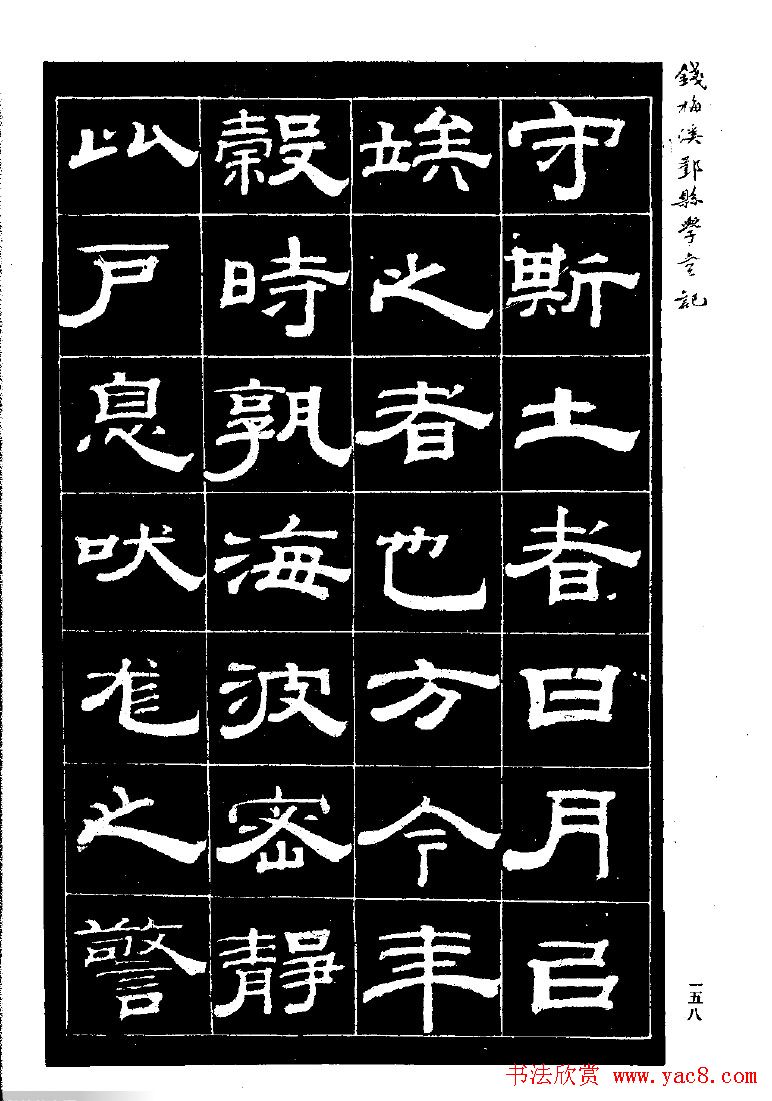 錢梅溪鄞縣學宮記
守斯土者日月已
竢之者也方今年
穀時孰海波密靜
比戶息吠尨之警
一五八
书法欣赏 www.yac8.com